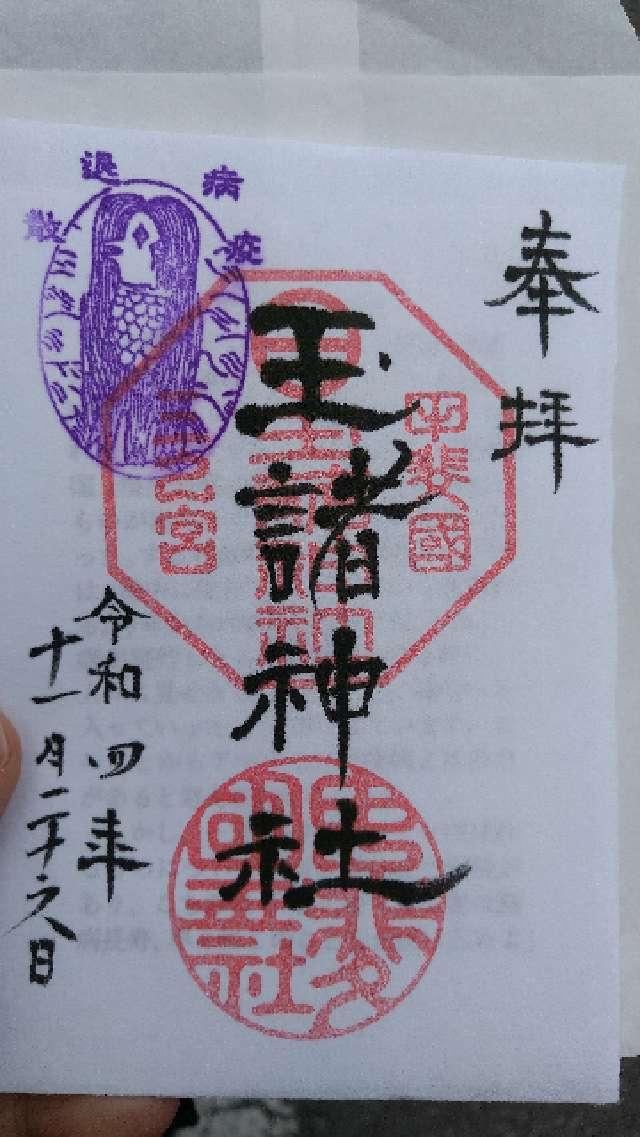 奉拝
甲斐國
玉諸神社
三之宮
令和四年
十一月二十六日
病疫退散